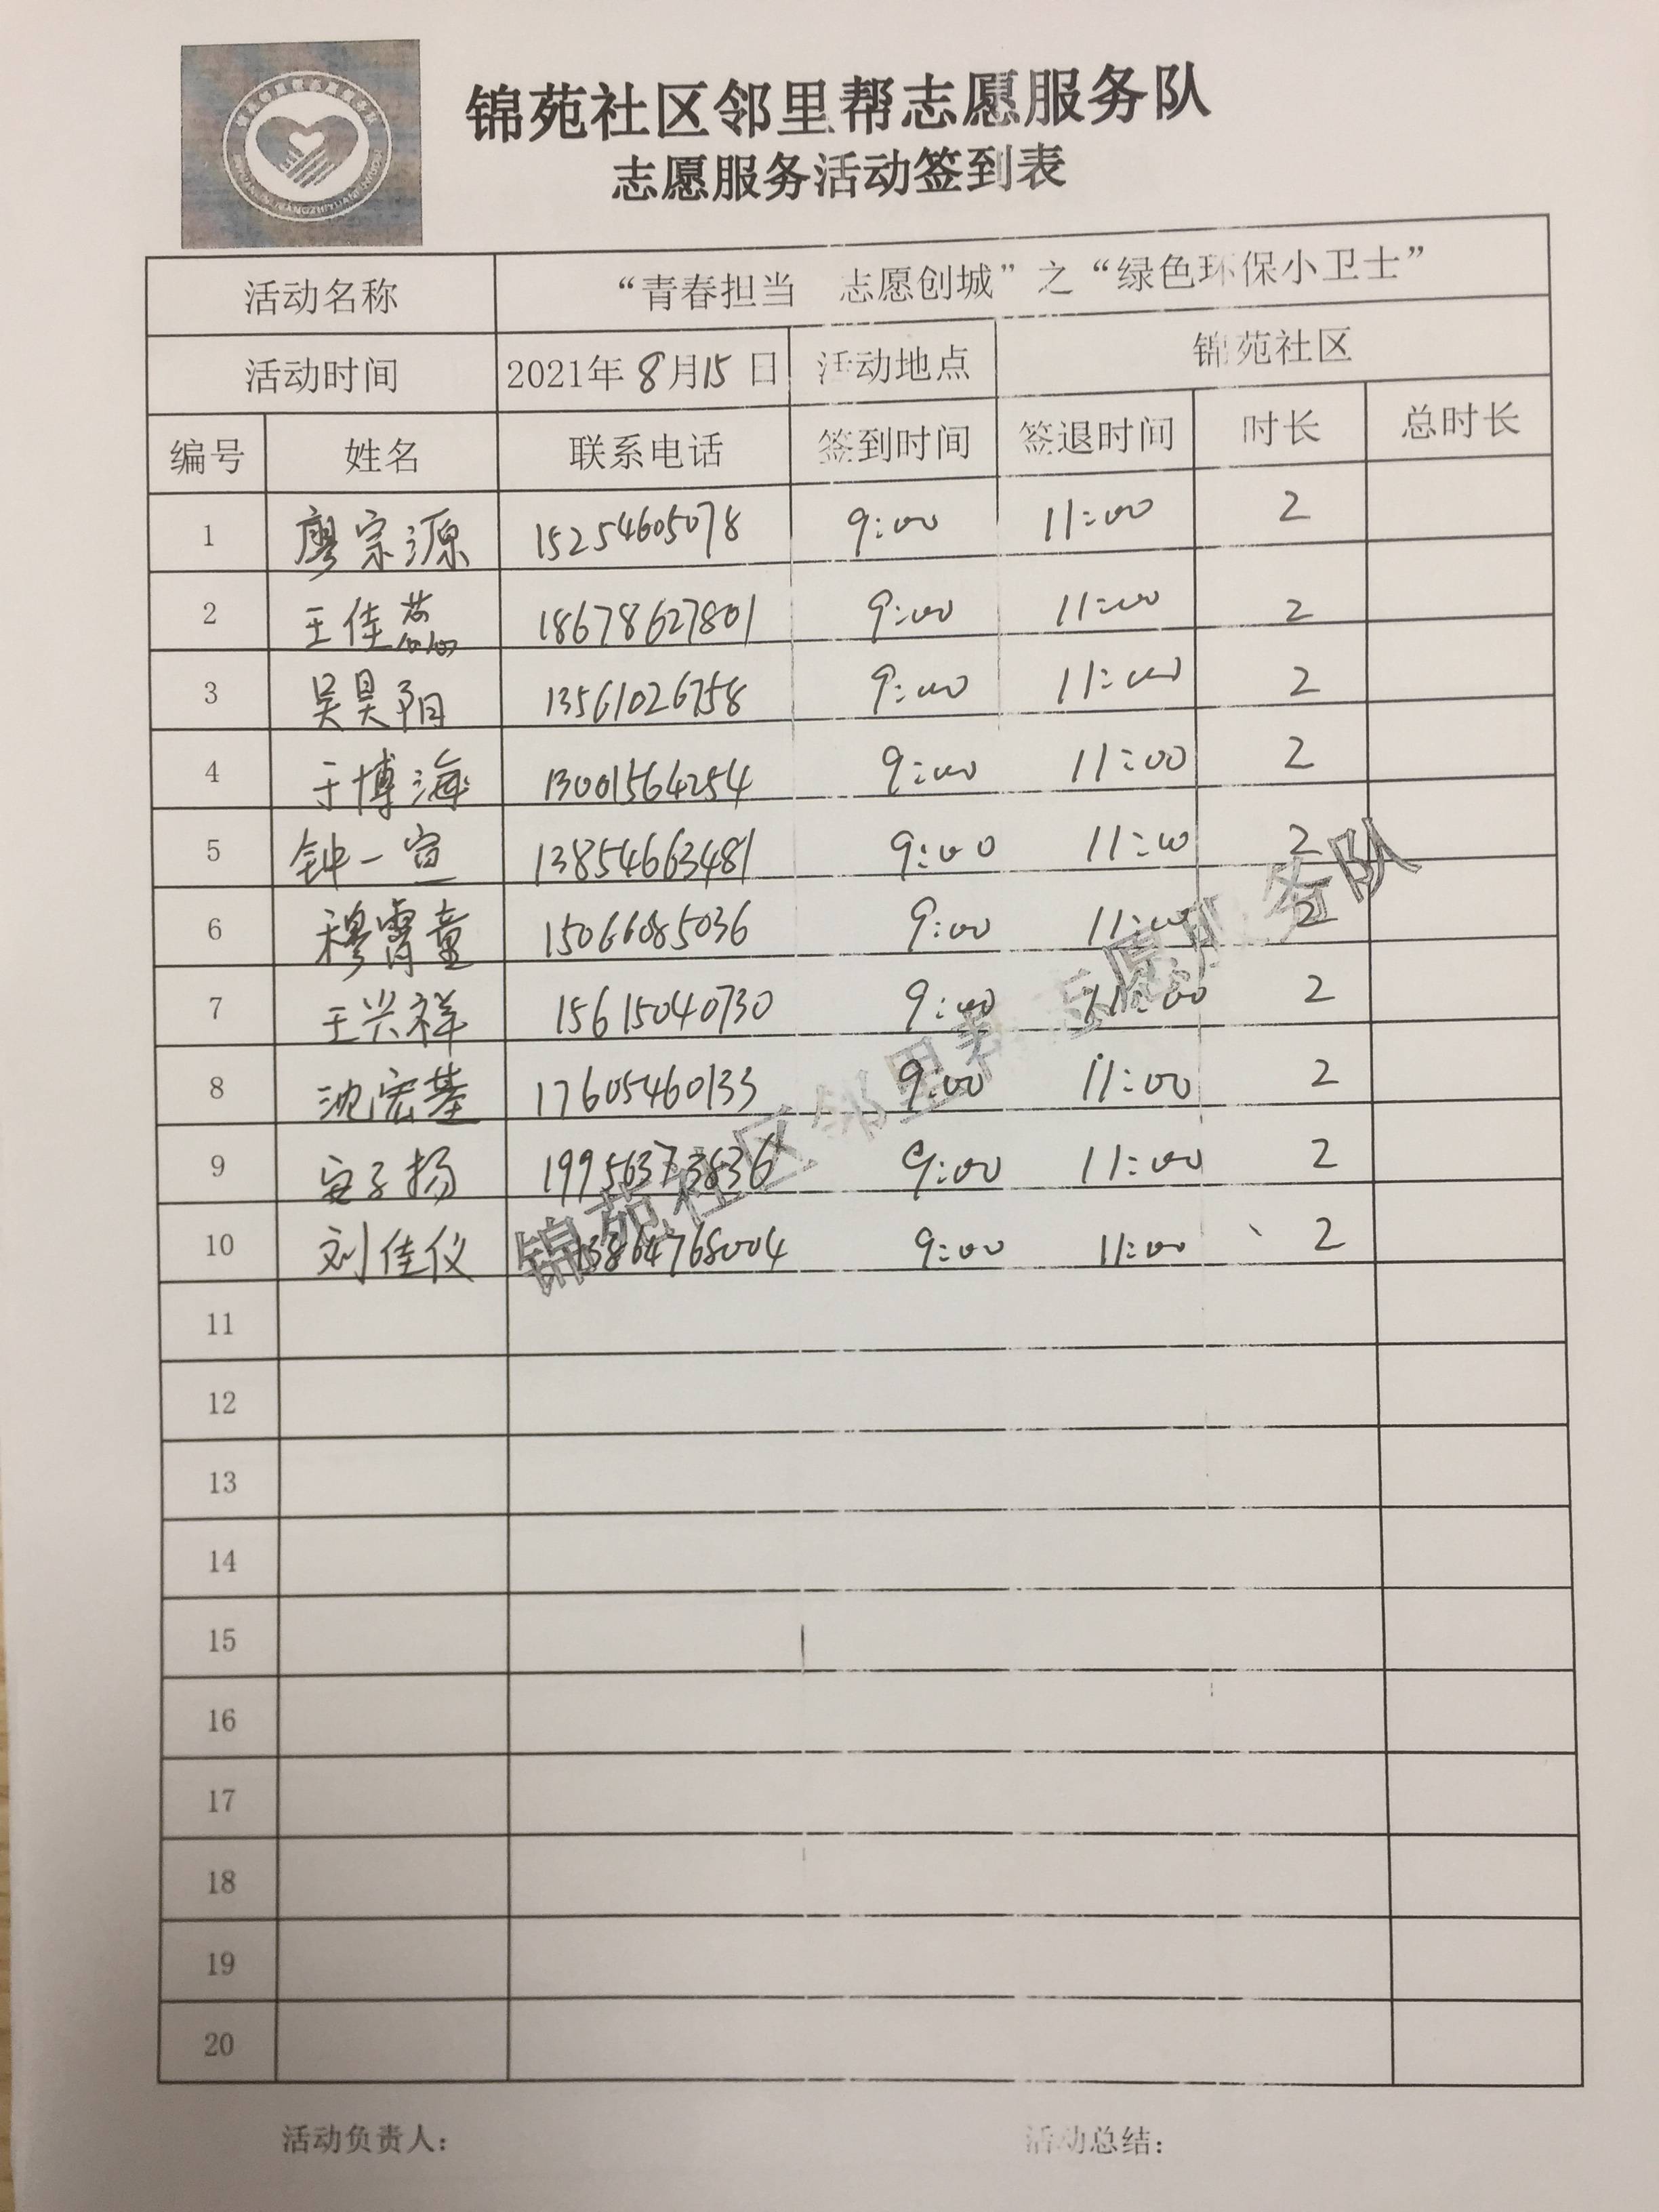 锦苑社区邻里帮志愿服务队
志愿服务活动签到表
活动名称 “青春担当 志愿创城”之“绿色环保小卫士”
活动时间 2021年8月15日 活动地点 锦苑社区
编号 姓名 联系电话 签到时间 签退时间 时长 总时长
1 廖宗源 15254605078 9:00 11:00 2
2 王佳蕊 18678627801 9:00 11:00 2
3 吴昊阳 13561026758 9:00 11:00 2
4 于博海 13001564254 9:00 11:00 2
5 钟一宣 13854663481 9:00 11:00 2
6 穆霄童 15066085036 9:00 11:00 2
7 王兴祥 15615040730 9:00 11:00 2
8 沈宏基 17605460133 9:00 11:00 2
9 安子扬 19956373836 9:00 11:00 2
10 刘佳仪 13864768004 9:00 11:00 2
11
12
13
14
15
16
17
18
19
20
锦苑社区邻里帮志愿服务队
活动负责人： 活动总结：